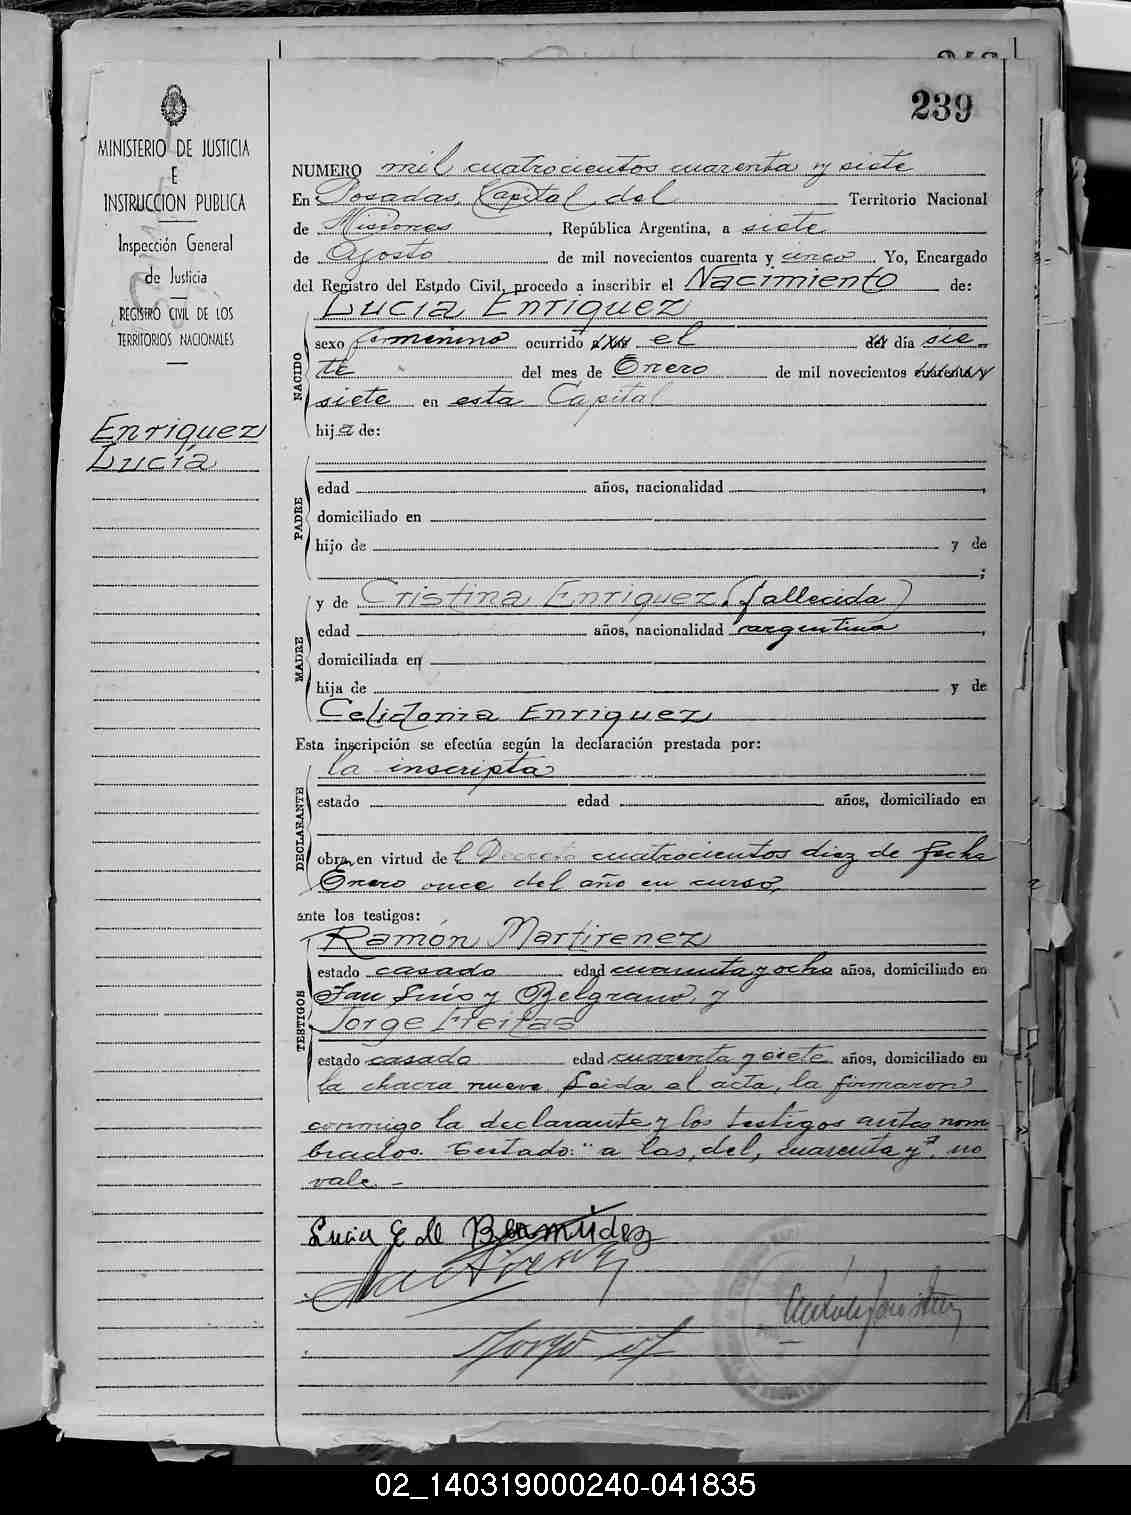 239
MINISTERIO DE JUSTICIA
E
INSTRUCCION PUBLICA
Inspección General
de Justicia
REGISTRO CIVIL DE LOS
TERRITORIOS NACIONALES
Enriquez
Lucía
NUMERO mil cuatrocientos cuarenta y siete
En Posadas, Capital del Territorio Nacional
de Misiones, República Argentina, a siete
de Agosto de mil novecientos cuarenta y cinco. Yo, Encargado
del Registro del Estado Civil, procedo a inscribir el Nacimiento de:
NACIDO
Lucía Enriquez
sexo femenino ocurrido a las el del día sie-
te del mes de Enero de mil novecientos cuarenta y
siete en esta Capital
hija de:
PADRE
edad años, nacionalidad ,
domiciliado en
hijo de y de
;
MADRE
y de Cristina Enriquez (fallecida)
edad años, nacionalidad argentina,
domiciliada en
hija de y de
Celidonia Enriquez
Esta inscripción se efectúa según la declaración prestada por:
DECLARANTE
la inscripta
estado edad años, domiciliado en
obra en virtud del Decreto cuatrocientos diez de fecha
Enero once del año en curso,
ante los testigos:
TESTIGOS
Ramón Martirenez
estado casado edad cuarenta y ocho años, domiciliado en
San Luis y Belgrano, y
Jorge Freitas
estado casado edad cuarenta y siete años, domiciliado en
la chacra nueve. Leida el acta, la firmaron
conmigo la declarante y los testigos antes nom
brados. Testado: "a las, del, cuarenta y", no
vale.-
Lucia E de Bermúdez
02_140319000240-041835